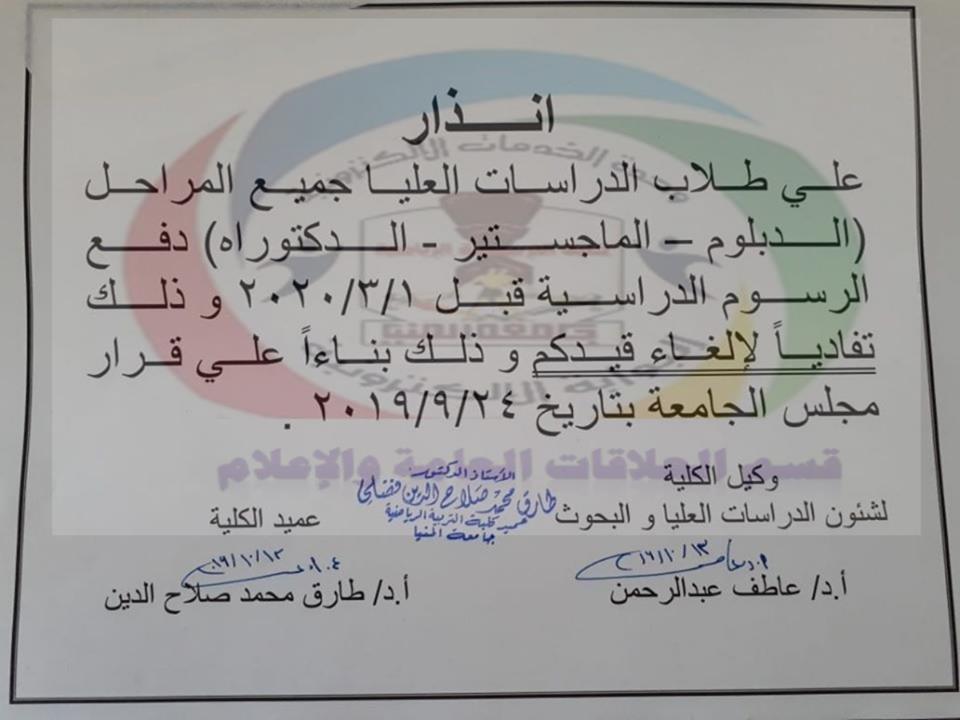 انذار
علي طلاب الدراسات العليا جميع المراحل
(الدبلوم – الماجستير - الدكتوراه) دفع
الرسوم الدراسية قبل ٢٠٢٠/٣/١ و ذلك
تفادياً لإلغاء قيدكم و ذلك بناءاً علي قرار
مجلس الجامعة بتاريخ ٢٠١٩/٩/٢٤ .
قسم العلاقات العامة والإعلام
وكيل الكلية
لشئون الدراسات العليا و البحوث
أ.د/ عاطف عبدالرحمن
الأستاذ الدكتور
طارق محمد صلاح الدين فضلي
عميد كلية التربية الرياضية
جامعة المنيا
عميد الكلية
أ.د/ طارق محمد صلاح الدين